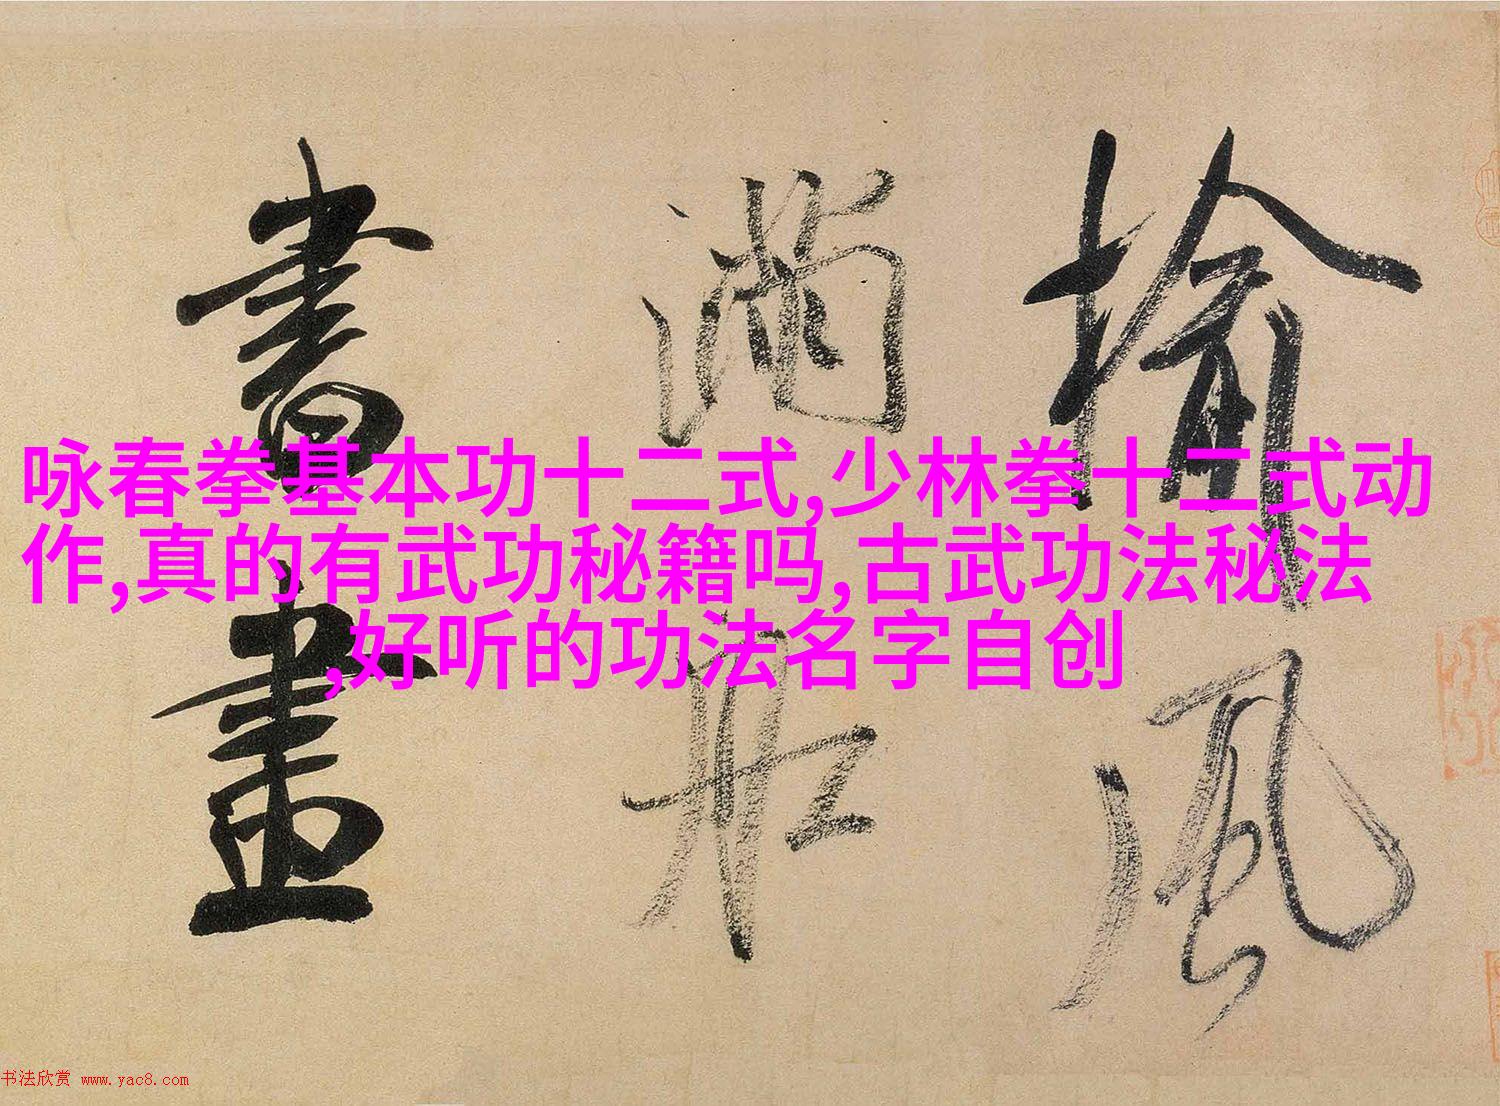 揄風
滿船
書畫
咏春拳基本功十二式,少林拳十二式动
作,真的有武功秘籍吗,古武功法秘法
,好听的功法名字自创
书法欣赏 www.yac8.com